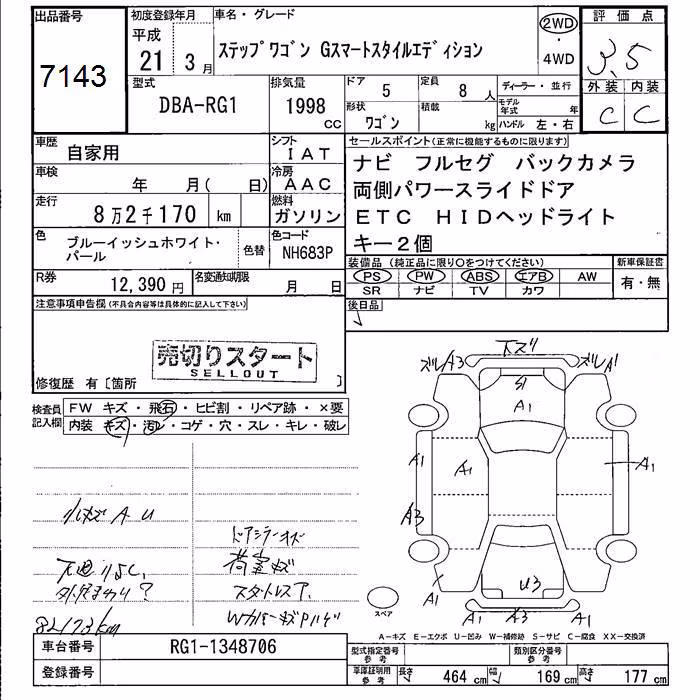 出品番号
7143
初度登録年月
平成
21 3月
車名・グレード
ステップワゴン Gスマートスタイルエディション
2WD
・
4WD
評価点
3.5
外装 内装
C C
型式
DBA-RG1
排気量
1998
CC
ドア 5
定員 8人
形状 ワゴン
積載 kg
ディーラー・並行
モデル年式 年
ハンドル 左・右
車歴
自家用
シフト
IAT
車検
年 月( 日)
冷房
AAC
走行
8万2千170 km
燃料
ガソリン
色
ブルーイッシュホワイト・
パール
色替
色コード
NH683P
R券
12,390円
名変通知期限
月 日
セールスポイント(正常に機能するものに限ります)
ナビ フルセグ バックカメラ
両側パワースライドドア
ETC HIDヘッドライト
キー2個
装備品(純正品に限り○をつけてください)
新車保証書
PS PW ABS エアB AW
有・無
SR ナビ TV カワ
後日品
注意事項申告欄(不具合内容等は具体的に記入して下さい)
売切りスタート
SELLOUT
修復歴 有〔箇所 〕
検査員
記入欄
FW キズ・飛石・ヒビ割・リペア跡・×要
内装 キズ・汚レ・コゲ・穴・スレ・キレ・破レ
小キズ A U
ドアミラーキズ
荷室キズ
スタットレス
下スリ
A3
S1
A1
A1
A1
A1
A3
U3
A1
A1
A1
スペア
82173km
A-キズ E-エクボ U-凹み W-補修跡 S-サビ C-腐食 XX-交換済
車台番号
RG1-1348706
登録番号
型式指定番号
参考
類別区分番号
参考
車庫証明用
参考
長さ 464 cm
幅 169 cm
高さ 177 cm